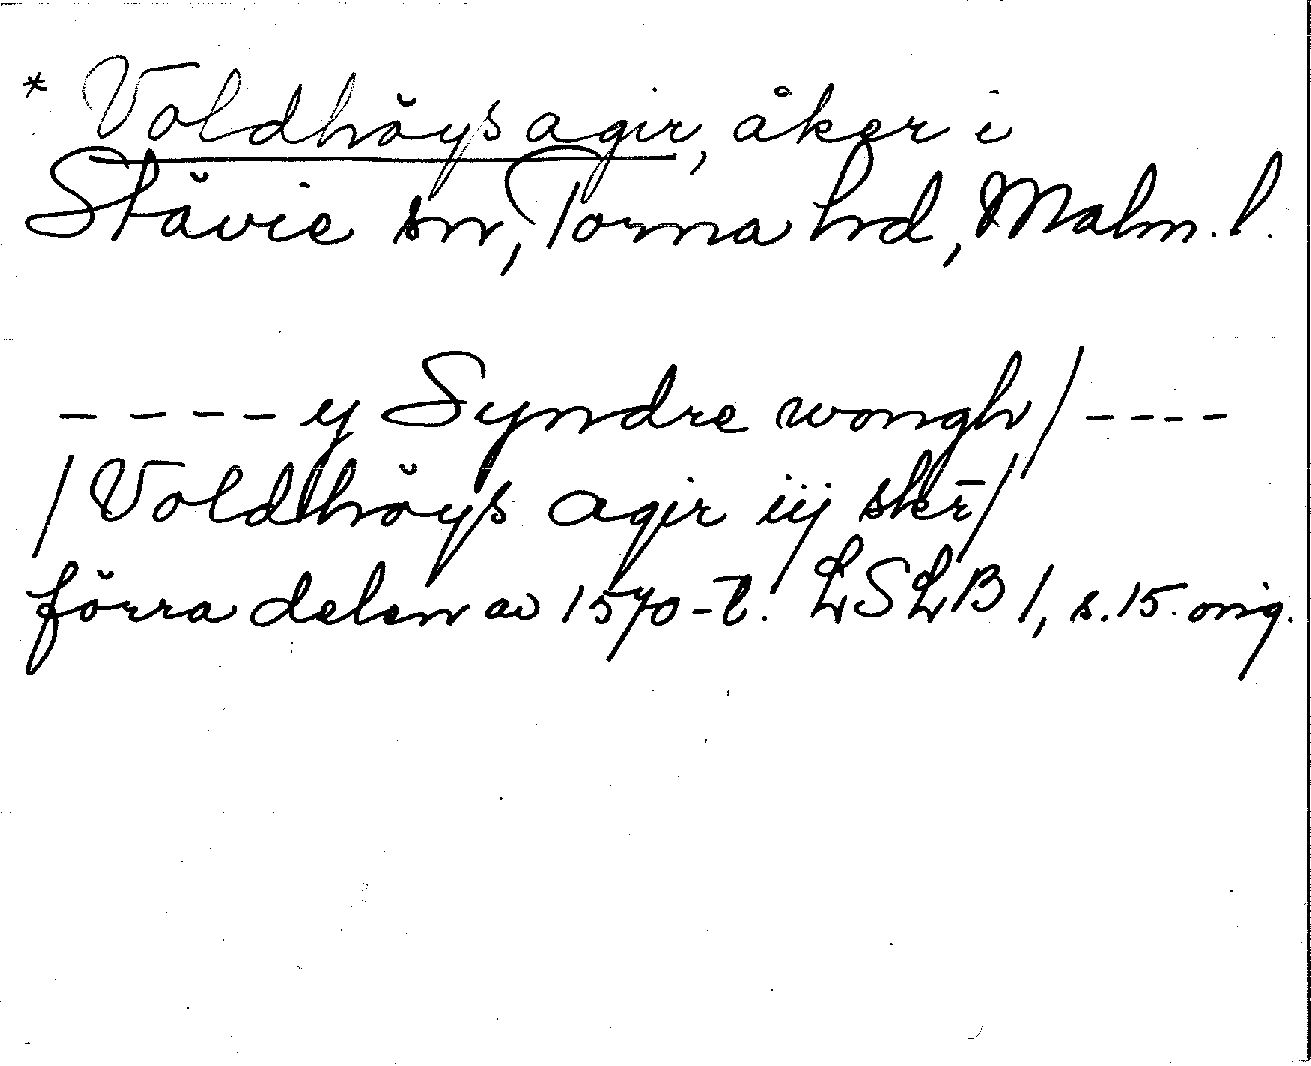 * Voldhöys agir, åker i
Stävie sn, Torna hd, Malm. l.
---- y Syndre wongh/----
/Voldhöys agir iij skr̄/
förra delen av 1570-t. LSLB 1, s. 15. orig.